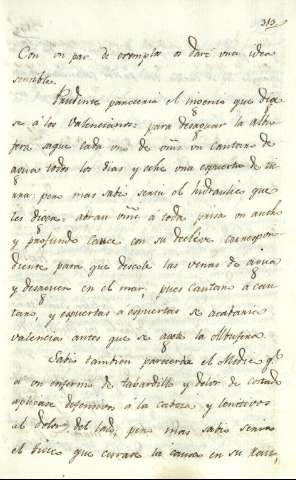 313
Con un par de exemplos os daré una idea
sensible.
Prudente pareceria el ingenio que dixe
se a los Valencianos: para desaguar la albu
fera saque cada uno de vms un cantaro de
agua todos los dias y eche una espuerta de tie
rra: pero mas sabio seria el hidraulico que
les dixera: abran vms a toda prisa un ancho
y profundo cauce con su declive correspon
diente para que descole las venas de agua
y desaguen en el mar, pues cantaro a can
taro, y espuertas a espuertas se acabaria
Valencia antes que se agote la Albufera
Sabio tambien pareceria el Medico q.e
a un enfermo de tabardillo y dolor de costado
aplicase defensivos á la cabeza y lenitivos
al dolor del lado, pero mas sabio seria
el fisico que cortase la causa en su raiz,